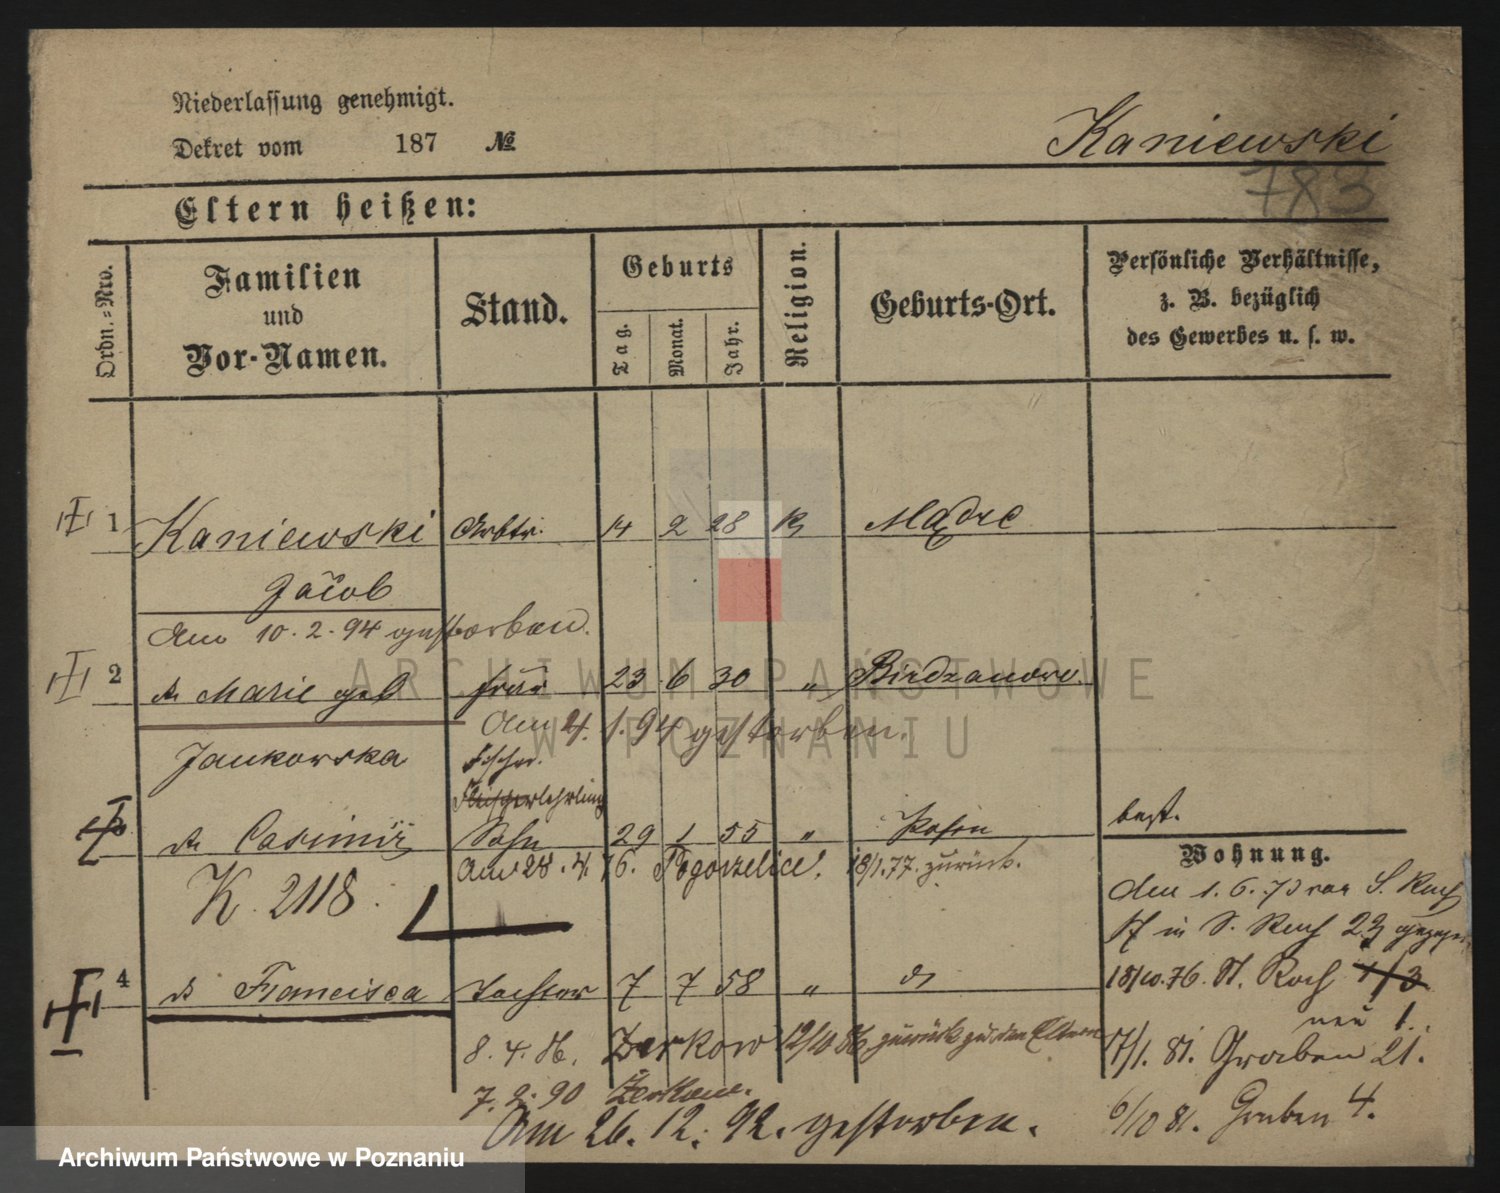 Niederlassung genehmigt.
Dekret vom 187 №
Kaniewski
783
Eltern heißen:
Ordn.-Nro.
Familien
und
Vor-Namen.
Stand.
Geburts
Tag.
Monat.
Jahr.
Religion.
Geburts-Ort.
Persönliche Verhältnisse,
z. B. bezüglich
des Gewerbes u. s. w.
1 Kaniewski Arbtr. 14 2 28 k Mądre
Jacob
Am 10. 2. 94 gestorben.
2 Marie geb Frau 23 6 30 "
Am 21. 1. 94 gestorben.
Jankowska
Fischer.
Fleischerlehrling
Casimir Sohn 29 1 55 " Posen best.
Am 28. 4. 76. Pogorzelice! 18/1. 77. zurück.
K. 2118.
Wohnung.
Am 1. 6. 73 von S. Roch
17 in S. Roch 23
18/10. 76. St. Roch 1/3
neu 1.
4 Francisca Tochter 7 7 58 "
8. 4. 86. Zerkow 12/10 86 zurück zu den Eltern
17/1. 81. Graben 21.
7. 2. 90 Zerkow.
6/10 81. Graben 4.
Am 26. 12. 92. gestorben.
ARCHIWUM PAŃSTWOWE
W POZNANIU
Archiwum Państwowe w Poznaniu